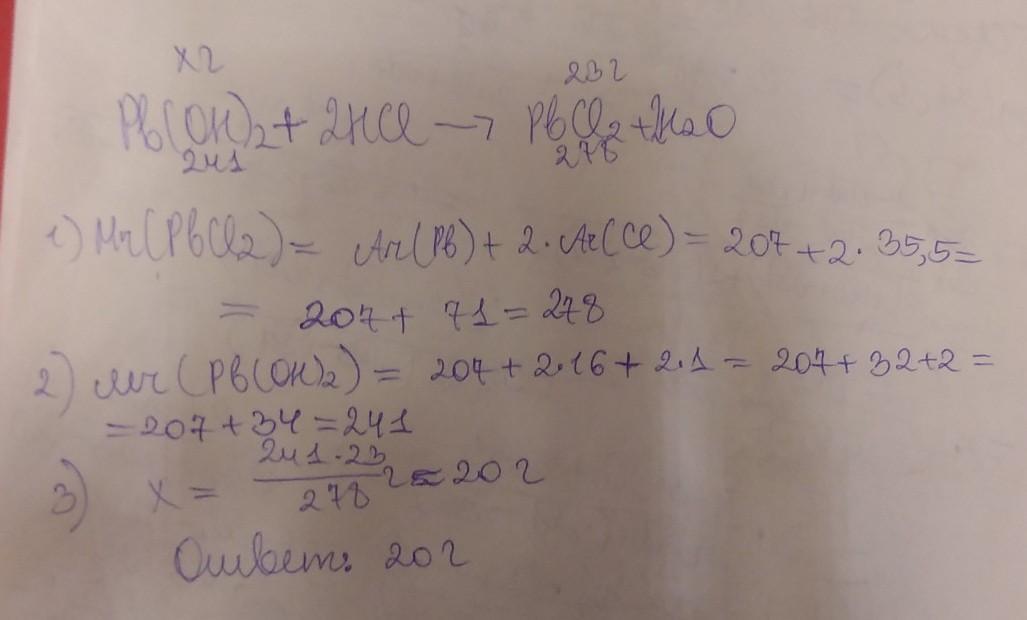 x г 23 г
Pb(OH)2 + 2HCl → PbCl2 + 2H2O
241 278
1) Mr(PbCl2) = Ar(Pb) + 2·Ar(Cl) = 207 + 2·35,5 =
= 207 + 71 = 278
2) Mr(Pb(OH)2) = 207 + 2·16 + 2·1 = 207 + 32 + 2 =
= 207 + 34 = 241
3) x = 241·23/278 г ≈ 20 г
Ответ: 20 г